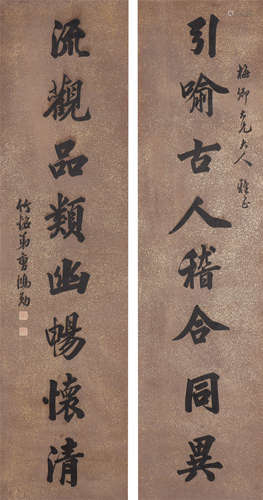 引喻古人稽合同異
梅卿大兄大人雅正
流觀品類幽暢懷清
竹銘弟曹鴻勛